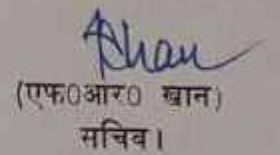 Khan
(एफ0आर0 खान)
सचिव।